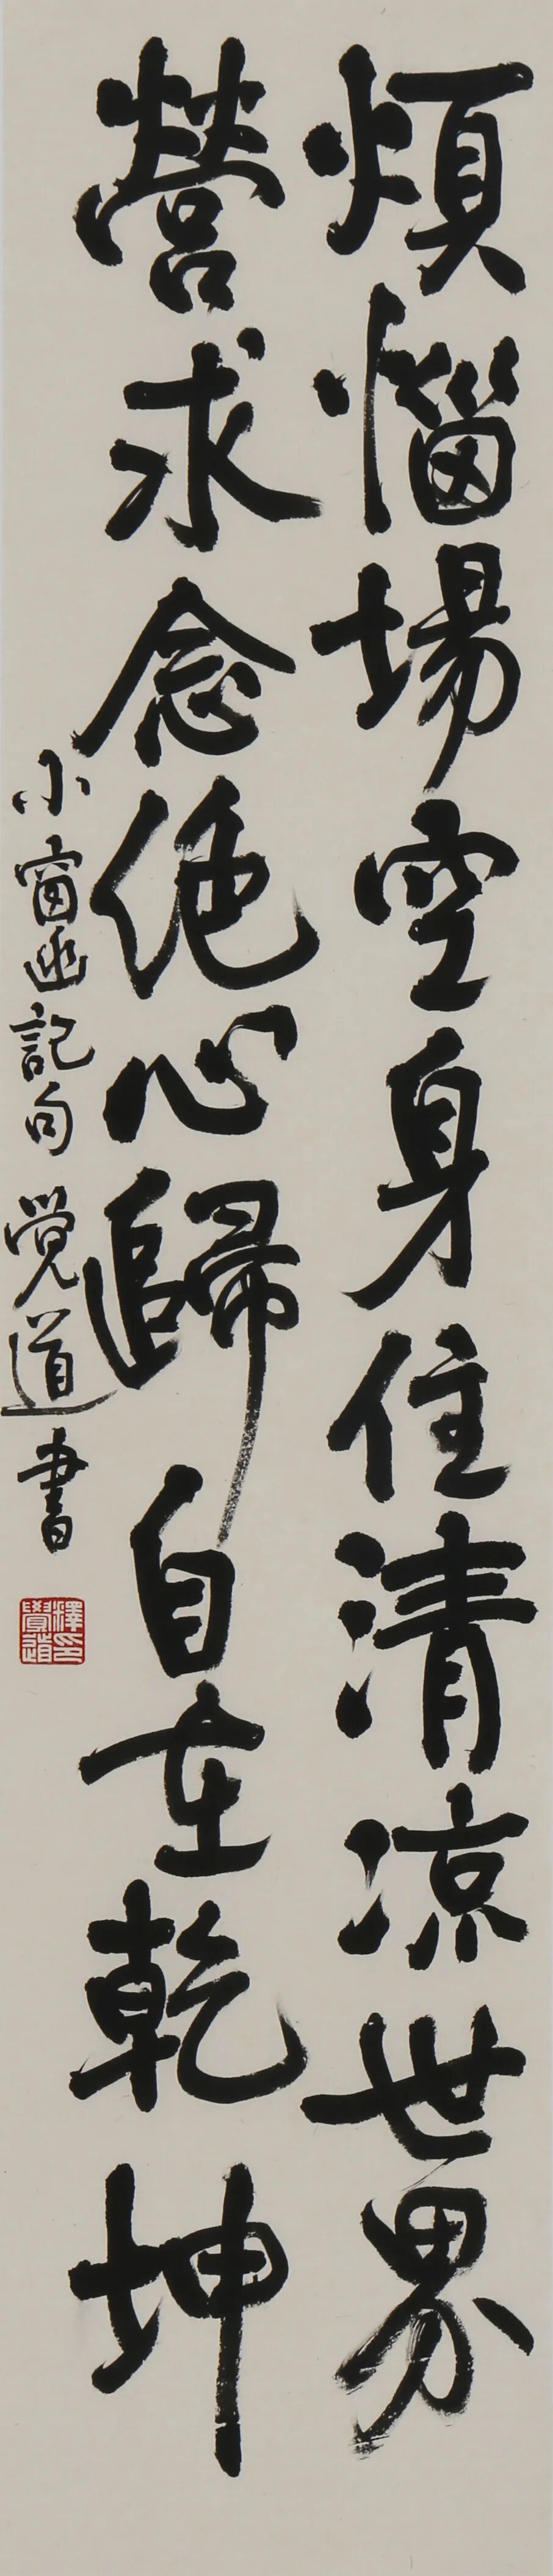 煩惱場空身住清涼世界
營求念絕心歸自在乾坤
小窗幽記句 觉道書
釋覺道印